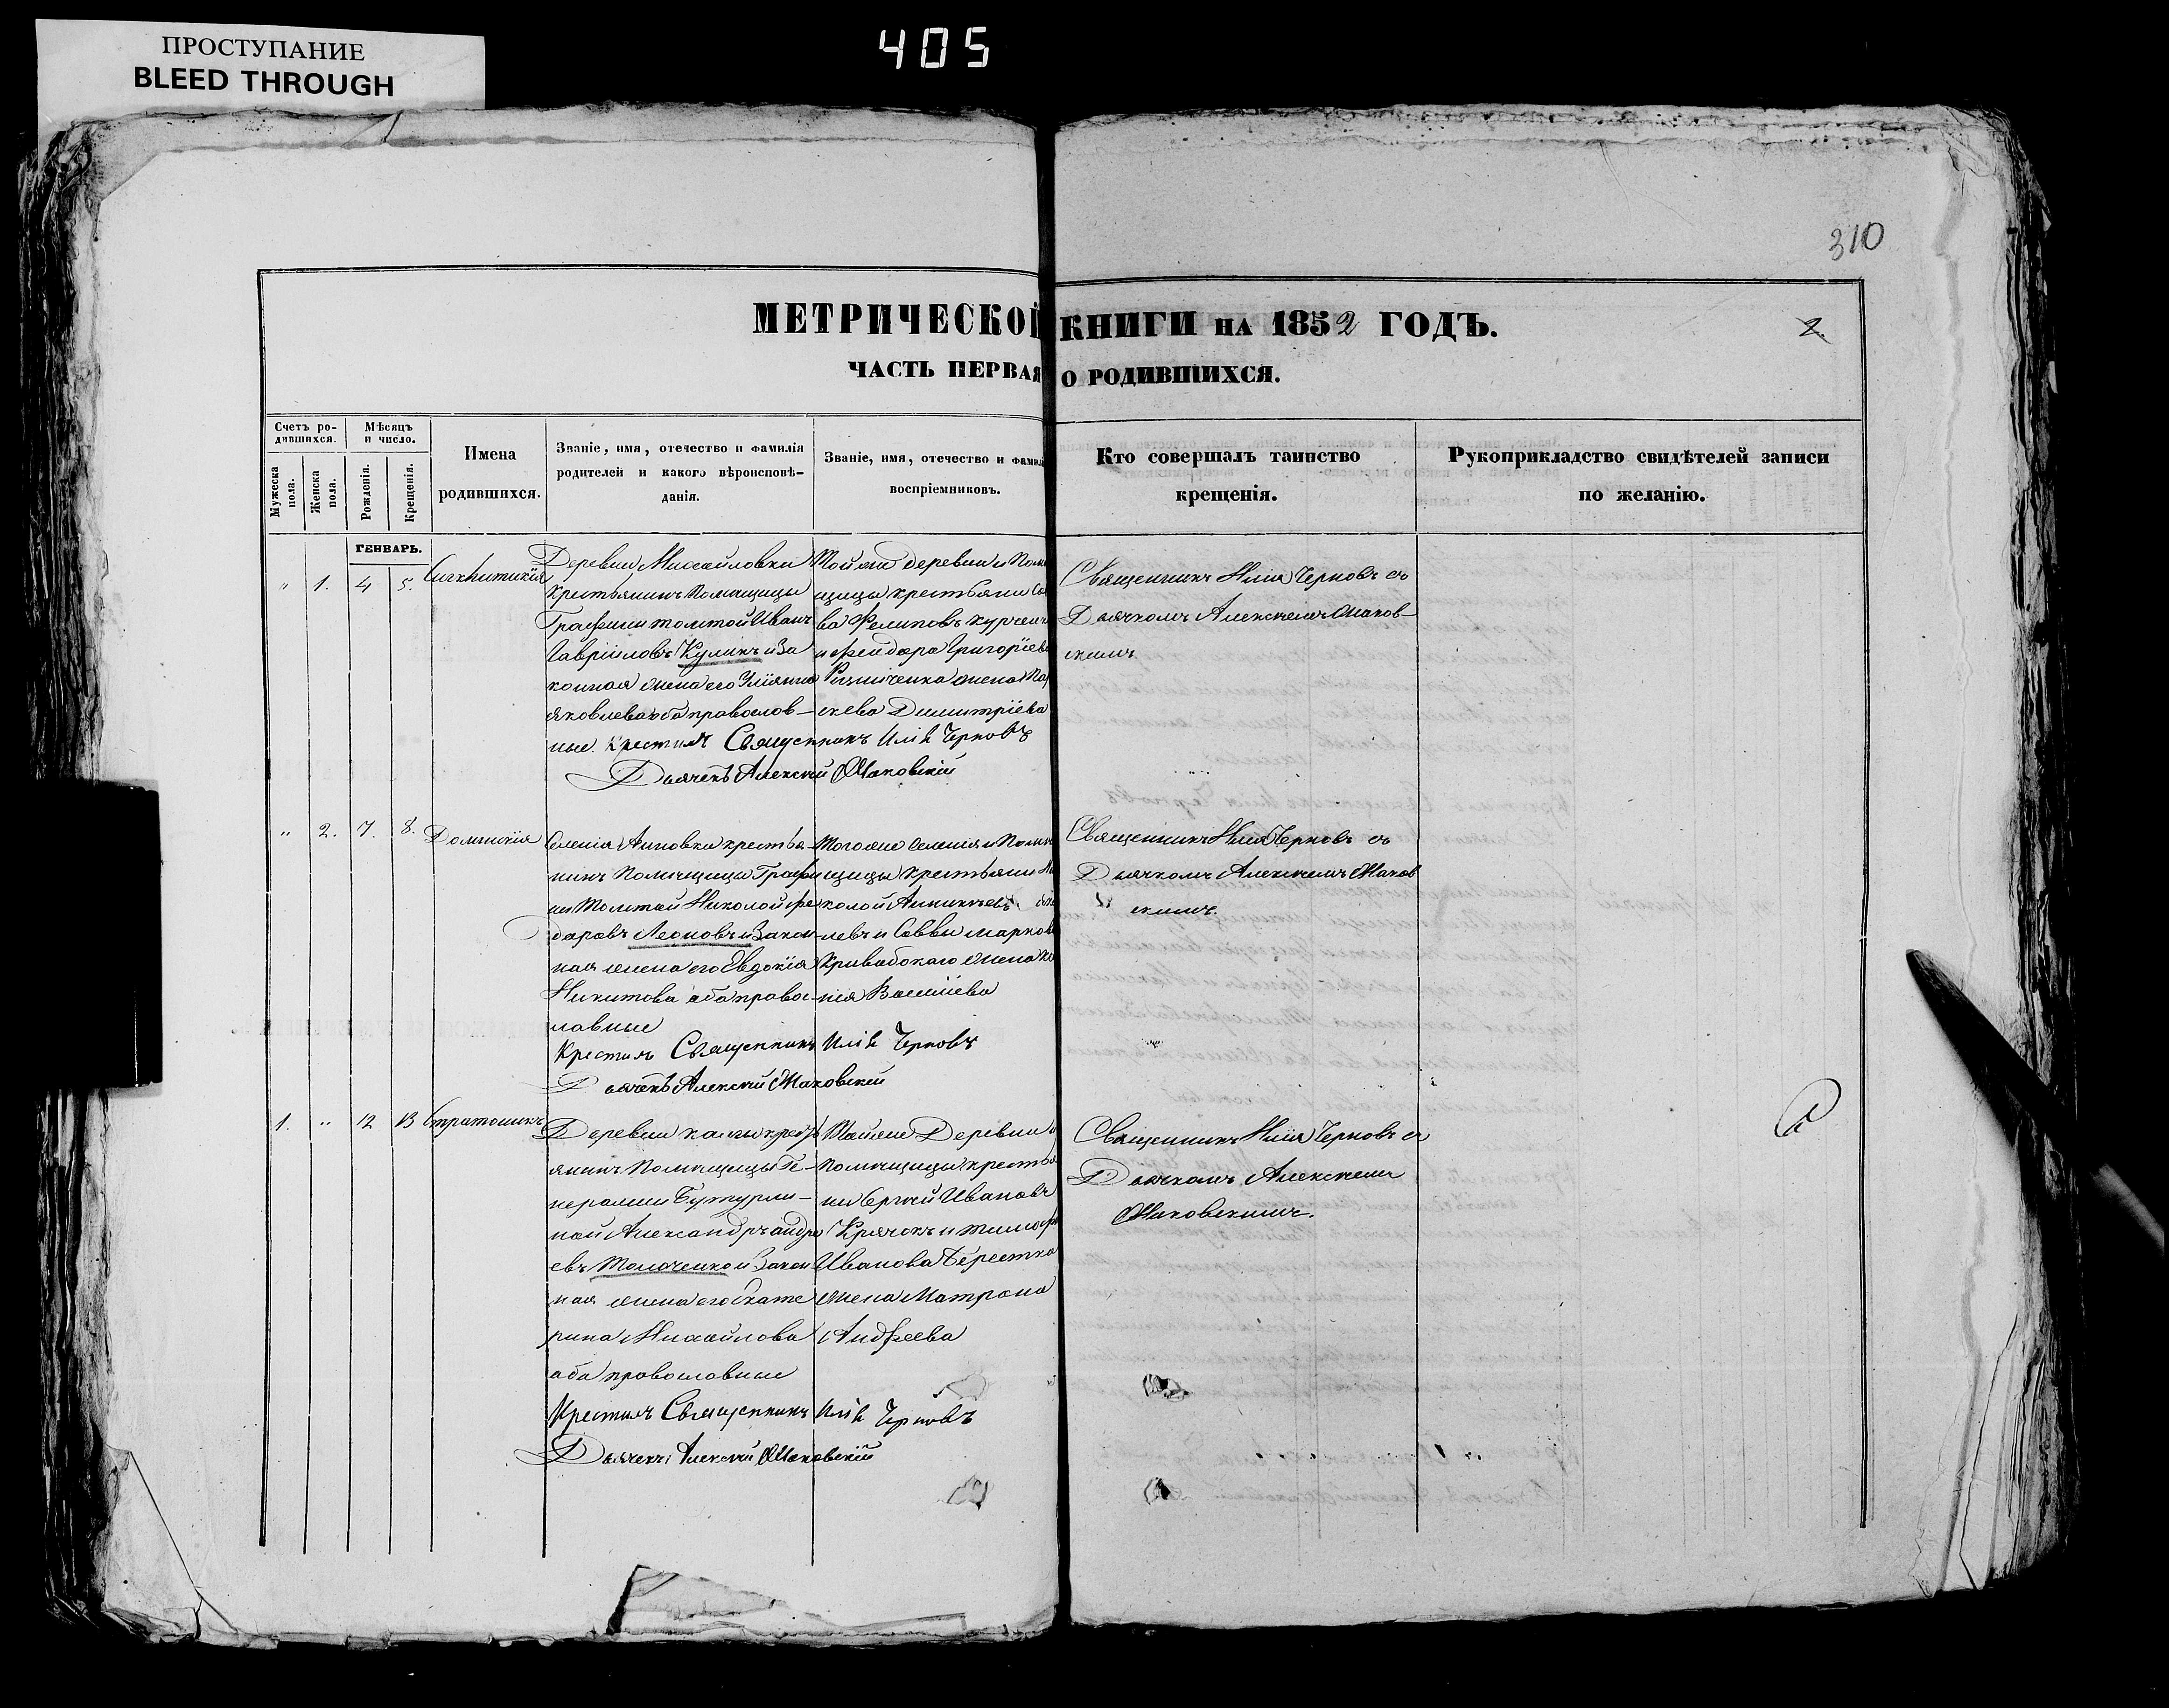 ПРОСТУПАНИЕ
BLEED THROUGH
405
310
МЕТРИЧЕСКОЙ КНИГИ НА 1852 ГОДЪ.
2.
ЧАСТЬ ПЕРВАЯ О РОДИВШИХСЯ.
Счетъ ро-
дившихся.
Мужеска
пола.
Женска
пола.
Мѣсяцъ
и число.
Рожденія.
Крещенія.
Имена
родившихся.
Званіе, имя, отечество и фамилія
родителей и какого вѣроисповѣ-
данія.
Званіе, имя, отечество и фамил
воспріемниковъ.
Кто совершалъ таинство
крещенія.
Рукоприкладство свидѣтелей записи
по желанію.
ГЕНВАРЬ.
" 1. 4 5.
Сигклитикія
Деревни Михайловки
крестьянинъ Помещицы
Графини Толстой Иванъ
Гавріиловъ Куликъ и за
конная жена его Уліянна
Яковлева оба православ-
ные. Крестилъ Священникъ Илія Черновъ
Дьячекъ Алексѣй Маковскій
Той же деревни и Поме
щицы крестьяни
ва Филиповъ
и Фейдора Григоріева
жена Пар
скева Димитріева
Священникъ Илія Черновъ съ
Дьячкомъ Алексѣемъ Маков-
скимъ
" 2. 7. 8.
Домникія
Селенія Анновки крестья-
нинъ Помещицы Графи
ни Толстой Николой Фе
доровъ Леоновъ и закон-
ная жена его Евдокія
Никитова оба правос-
лавные
Крестилъ Священникъ Илія Черновъ
Дьячекъ Алексѣй Маковскій
Того же селенія и Поме
щицы крестьяни Ни
колой
левъ и Саввы Марков
Кривобокаго жена
нія Василіева
Священникъ Илія Черновъ съ
Дьячкомъ Алексѣемъ Маков
скимъ.
1. " 12 13
Стратоникъ
Деревни крестьь
янинъ Помещицы Ге-
неральши Бутурли-
ной Александръ Андре
евъ Толоченко и закон
ная жена его Екате
рина Михайлова
оба православные
Крестилъ Священникъ Илія Черновъ
Дьячекъ Алексѣй Маковскій
Той же Деревни и
Помещицы крестья
ни Сергѣй Ивановъ
Крячокъ и Тимоф
Иванова Берестка
жена Матрона
Андреева
Священникъ Илія Черновъ съ
Дьячкомъ Алексѣемъ
Маковскимъ.